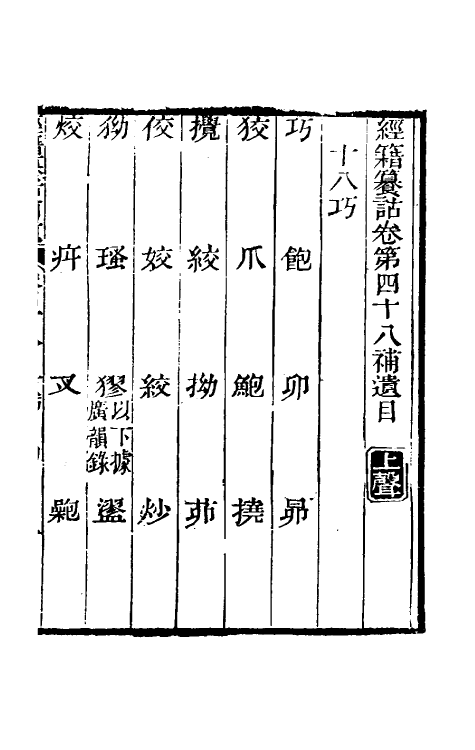 經籍籑詁卷第四十八補遺目 上聲
十八巧
巧 飽 卯 昴
狡 爪 鮑 撓
攪 絞 拗 茆
佼 姣 絞 炒
㺒 瑵 獿以下據廣韻錄
烄 疛 叉